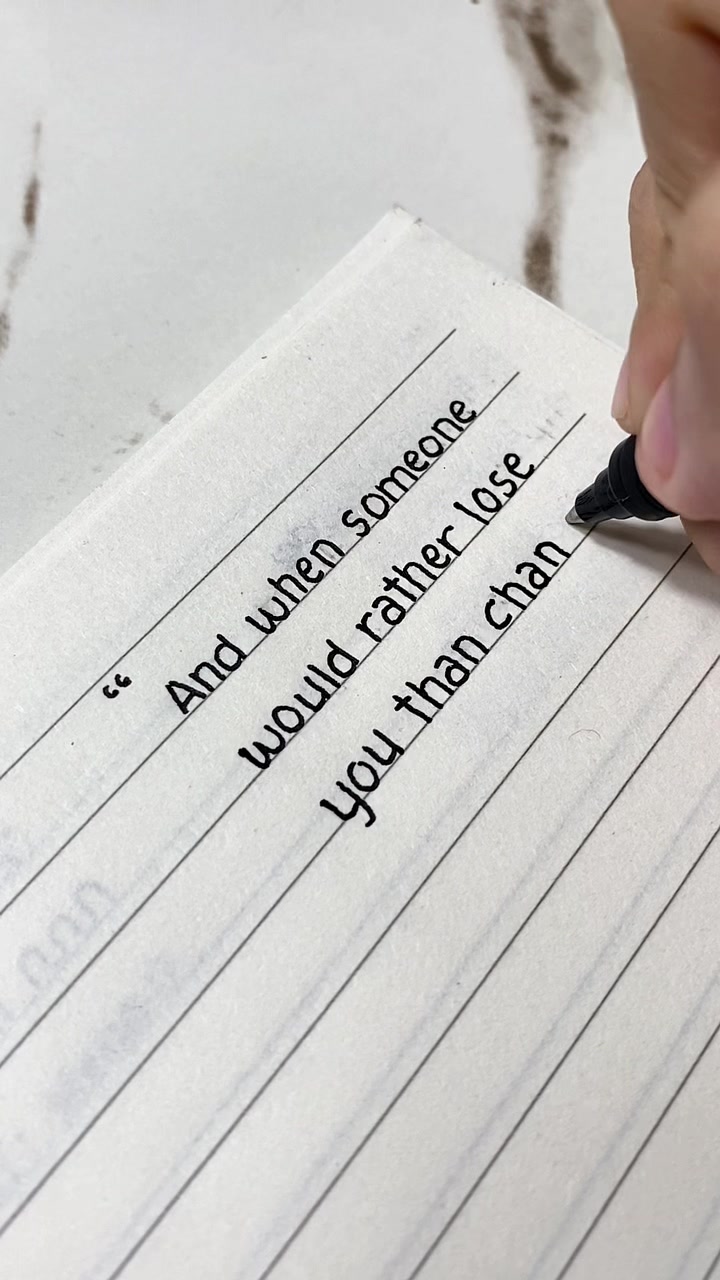 “ And when someone
would rather lose
you than chan